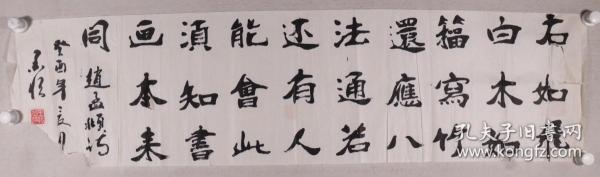 石如飛
白木如
籀寫竹
還應八
法通若
还有人
能會此
須知書
画本来
同 趙孟頫诗
癸酉年夏月
孔夫子旧书网
www.kongfz.com